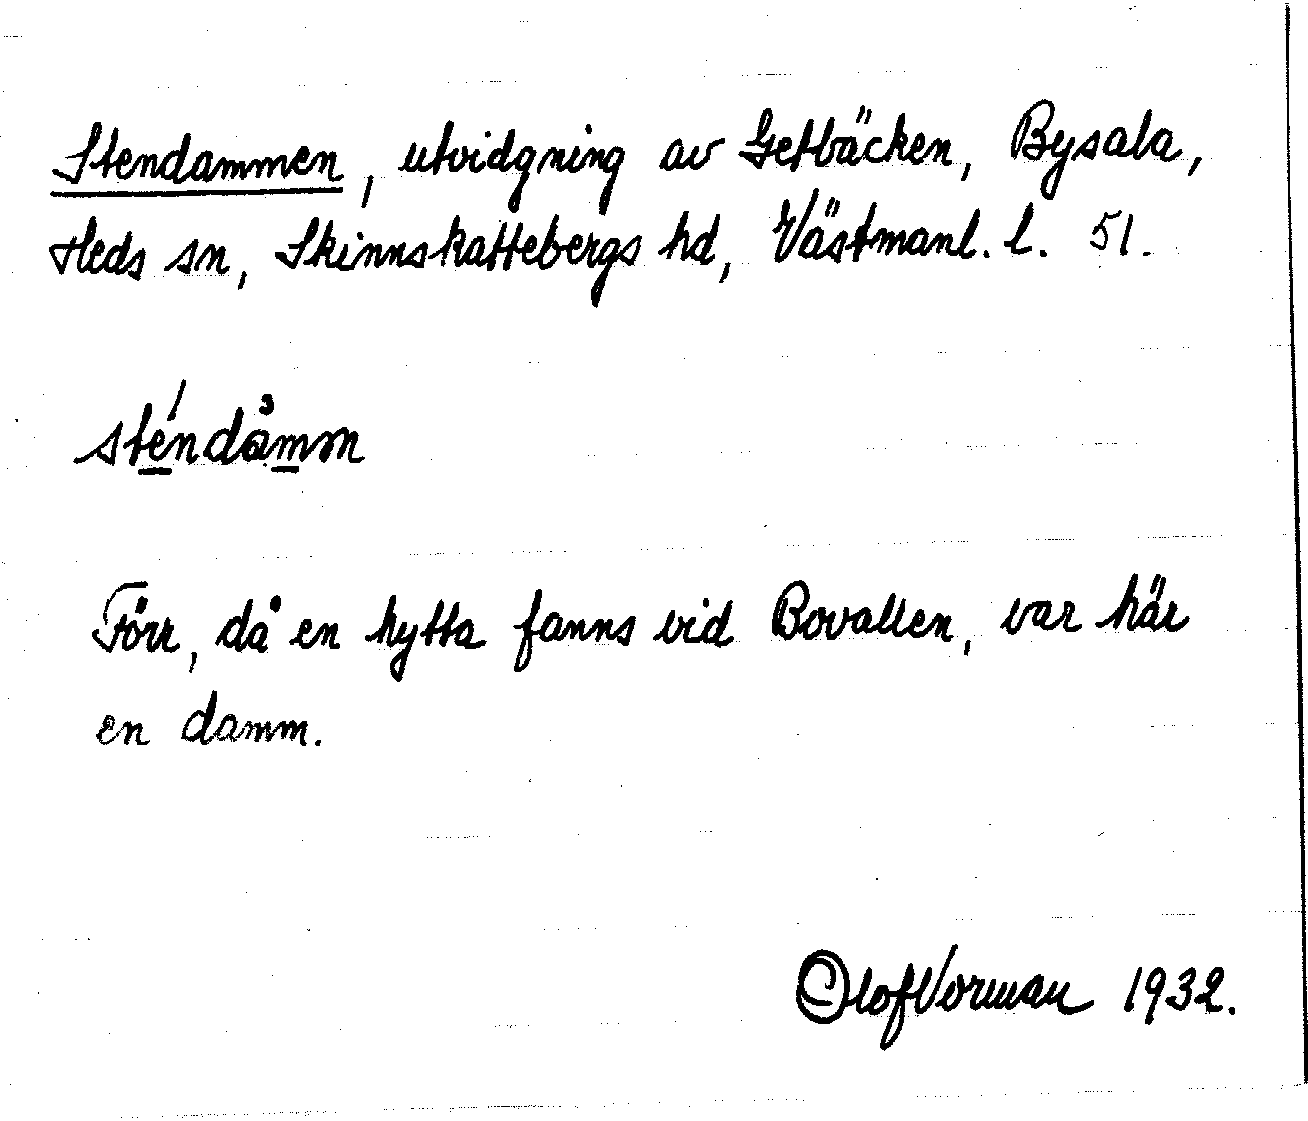 Stendammen, utvidgning av Getbäcken, Bysala,
Heds sn, Skinnskattebergs hd, Västmanl. l. 51.
sténdåmm
Förr, då en hytta fanns vid Bovallen, var här
en damm.
Olof Vorman 1932.